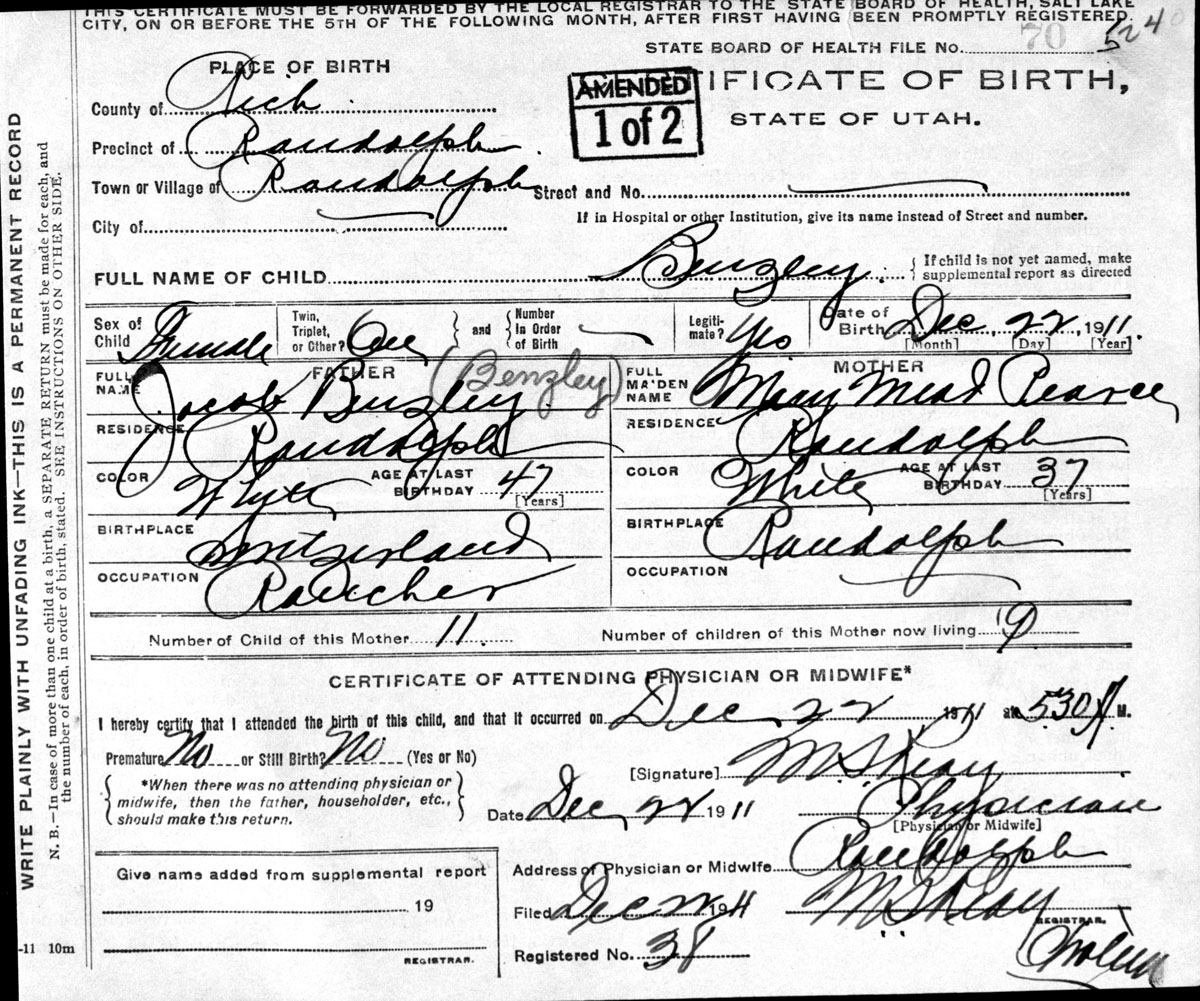 THIS CERTIFICATE MUST BE FORWARDED BY THE LOCAL REGISTRAR TO THE STATE BOARD OF HEALTH, SALT LAKE
CITY, ON OR BEFORE THE 5TH OF THE FOLLOWING MONTH, AFTER FIRST HAVING BEEN PROMPTLY REGISTERED.
STATE BOARD OF HEALTH FILE No. 70 5240
PLACE OF BIRTH
AMENDED
1 of 2
TIFICATE OF BIRTH,
STATE OF UTAH.
County of Rich
Precinct of Randolph
Town or Village of Randolph Street and No.
If in Hospital or other Institution, give its name instead of Street and number.
City of
FULL NAME OF CHILD Benzley { If child is not yet named, make supplemental report as directed
Sex of Child Female Twin, Triplet, or Other? One } and { Number in Order of Birth Legitimate? Yes Date of Birth Dec 22, 1911
[Month] [Day] [Year]
FATHER
FULL NAME Jacob Benzley (Benzley)
RESIDENCE Randolph
COLOR White AGE AT LAST BIRTHDAY 47
[Years]
BIRTHPLACE Switzerland
OCCUPATION Rancher
MOTHER
FULL MA'DEN NAME Mary Mead Pearce
RESIDENCE Randolph
COLOR White AGE AT LAST BIRTHDAY 37
[Years]
BIRTHPLACE Randolph
OCCUPATION
Number of Child of this Mother 11 Number of children of this Mother now living 9
CERTIFICATE OF ATTENDING PHYSICIAN OR MIDWIFE*
I hereby certify that I attended the birth of this child, and that it occurred on Dec 22 1911 at 530 A M.
Premature No or Still Birth? No (Yes or No)
[Signature] M S Reay
{ *When there was no attending physician or
midwife, then the father, householder, etc.,
should make this return. }
Date Dec 22 1911 Physician
[Physician or Midwife]
Address of Physician or Midwife Randolph
Filed Dec 22 1911 M S Reay
REGISTRAR.
Registered No. 38
Give name added from supplemental report
19
REGISTRAR.
-11 10m
WRITE PLAINLY WITH UNFADING INK—THIS IS A PERMANENT RECORD
N. B.—In case of more than one child at a birth, a SEPARATE RETURN must be made for each, and
the number of each, in order of birth, stated. SEE INSTRUCTIONS ON OTHER SIDE.